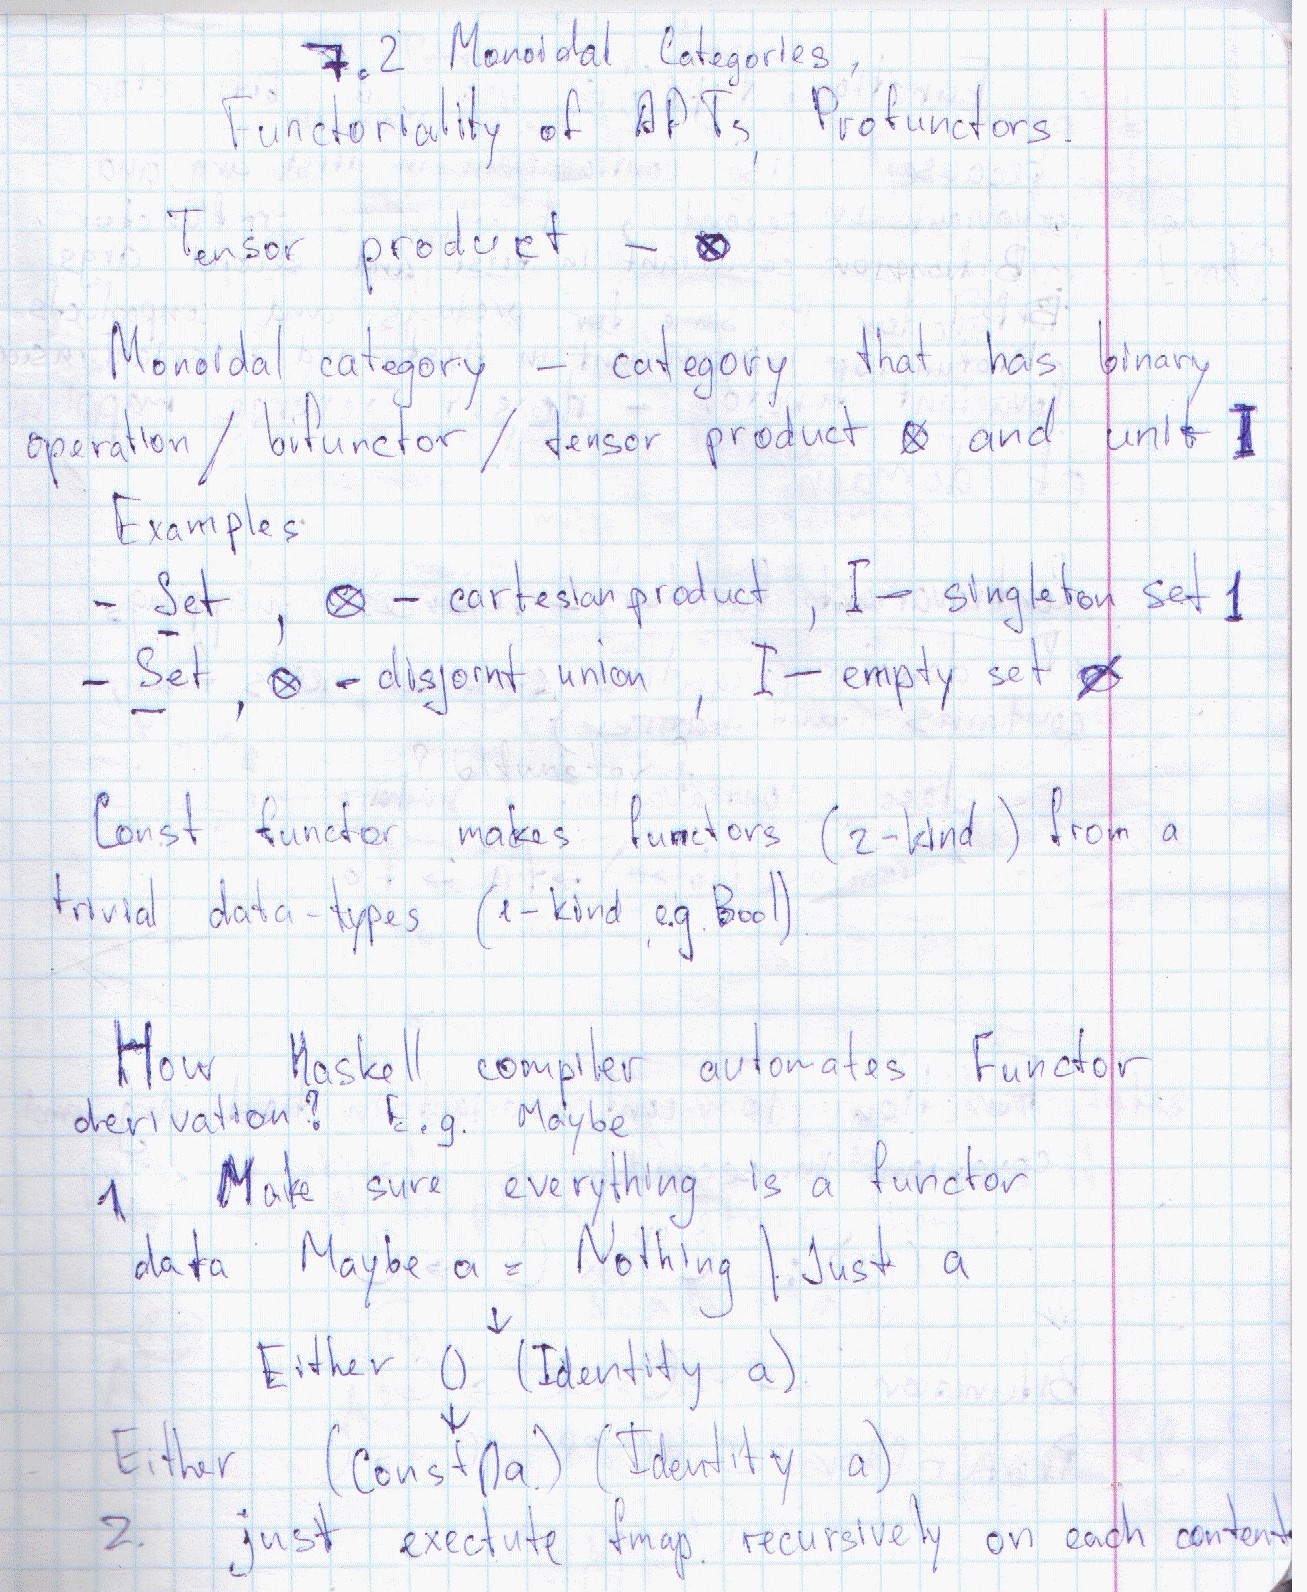 7.2 Monoidal Categories,
Functoriality of ADTs, Profunctors.
Tensor product – ⊗
Monoidal category – category that has binary
operation / bifunctor / tensor product ⊗ and unit I
Examples:
- Set, ⊗ – cartesian product, I – singleton set 1
- Set, ⊗ - disjoint union, I – empty set ∅
Const functor makes functors (2-kind) from a
trivial data-types (1-kind e.g. Bool)
How Haskell compiler automates Functor
derivation? E.g. Maybe
1 Make sure everything is a functor
data Maybe a = Nothing | Just a
↓
Either () (Identity a)
↓
Either (Const () a) (Identity a)
2. just exectute fmap. recursively on each content